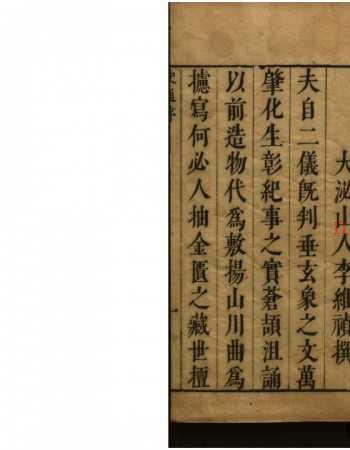 大泌山人李維禎撰
夫自二儀旣判垂玄象之文萬
肇化生彰紀事之實蒼頡沮誦
以前造物代爲敷揚山川曲爲
攄寫何必人抽金匱之藏世擅
史通序